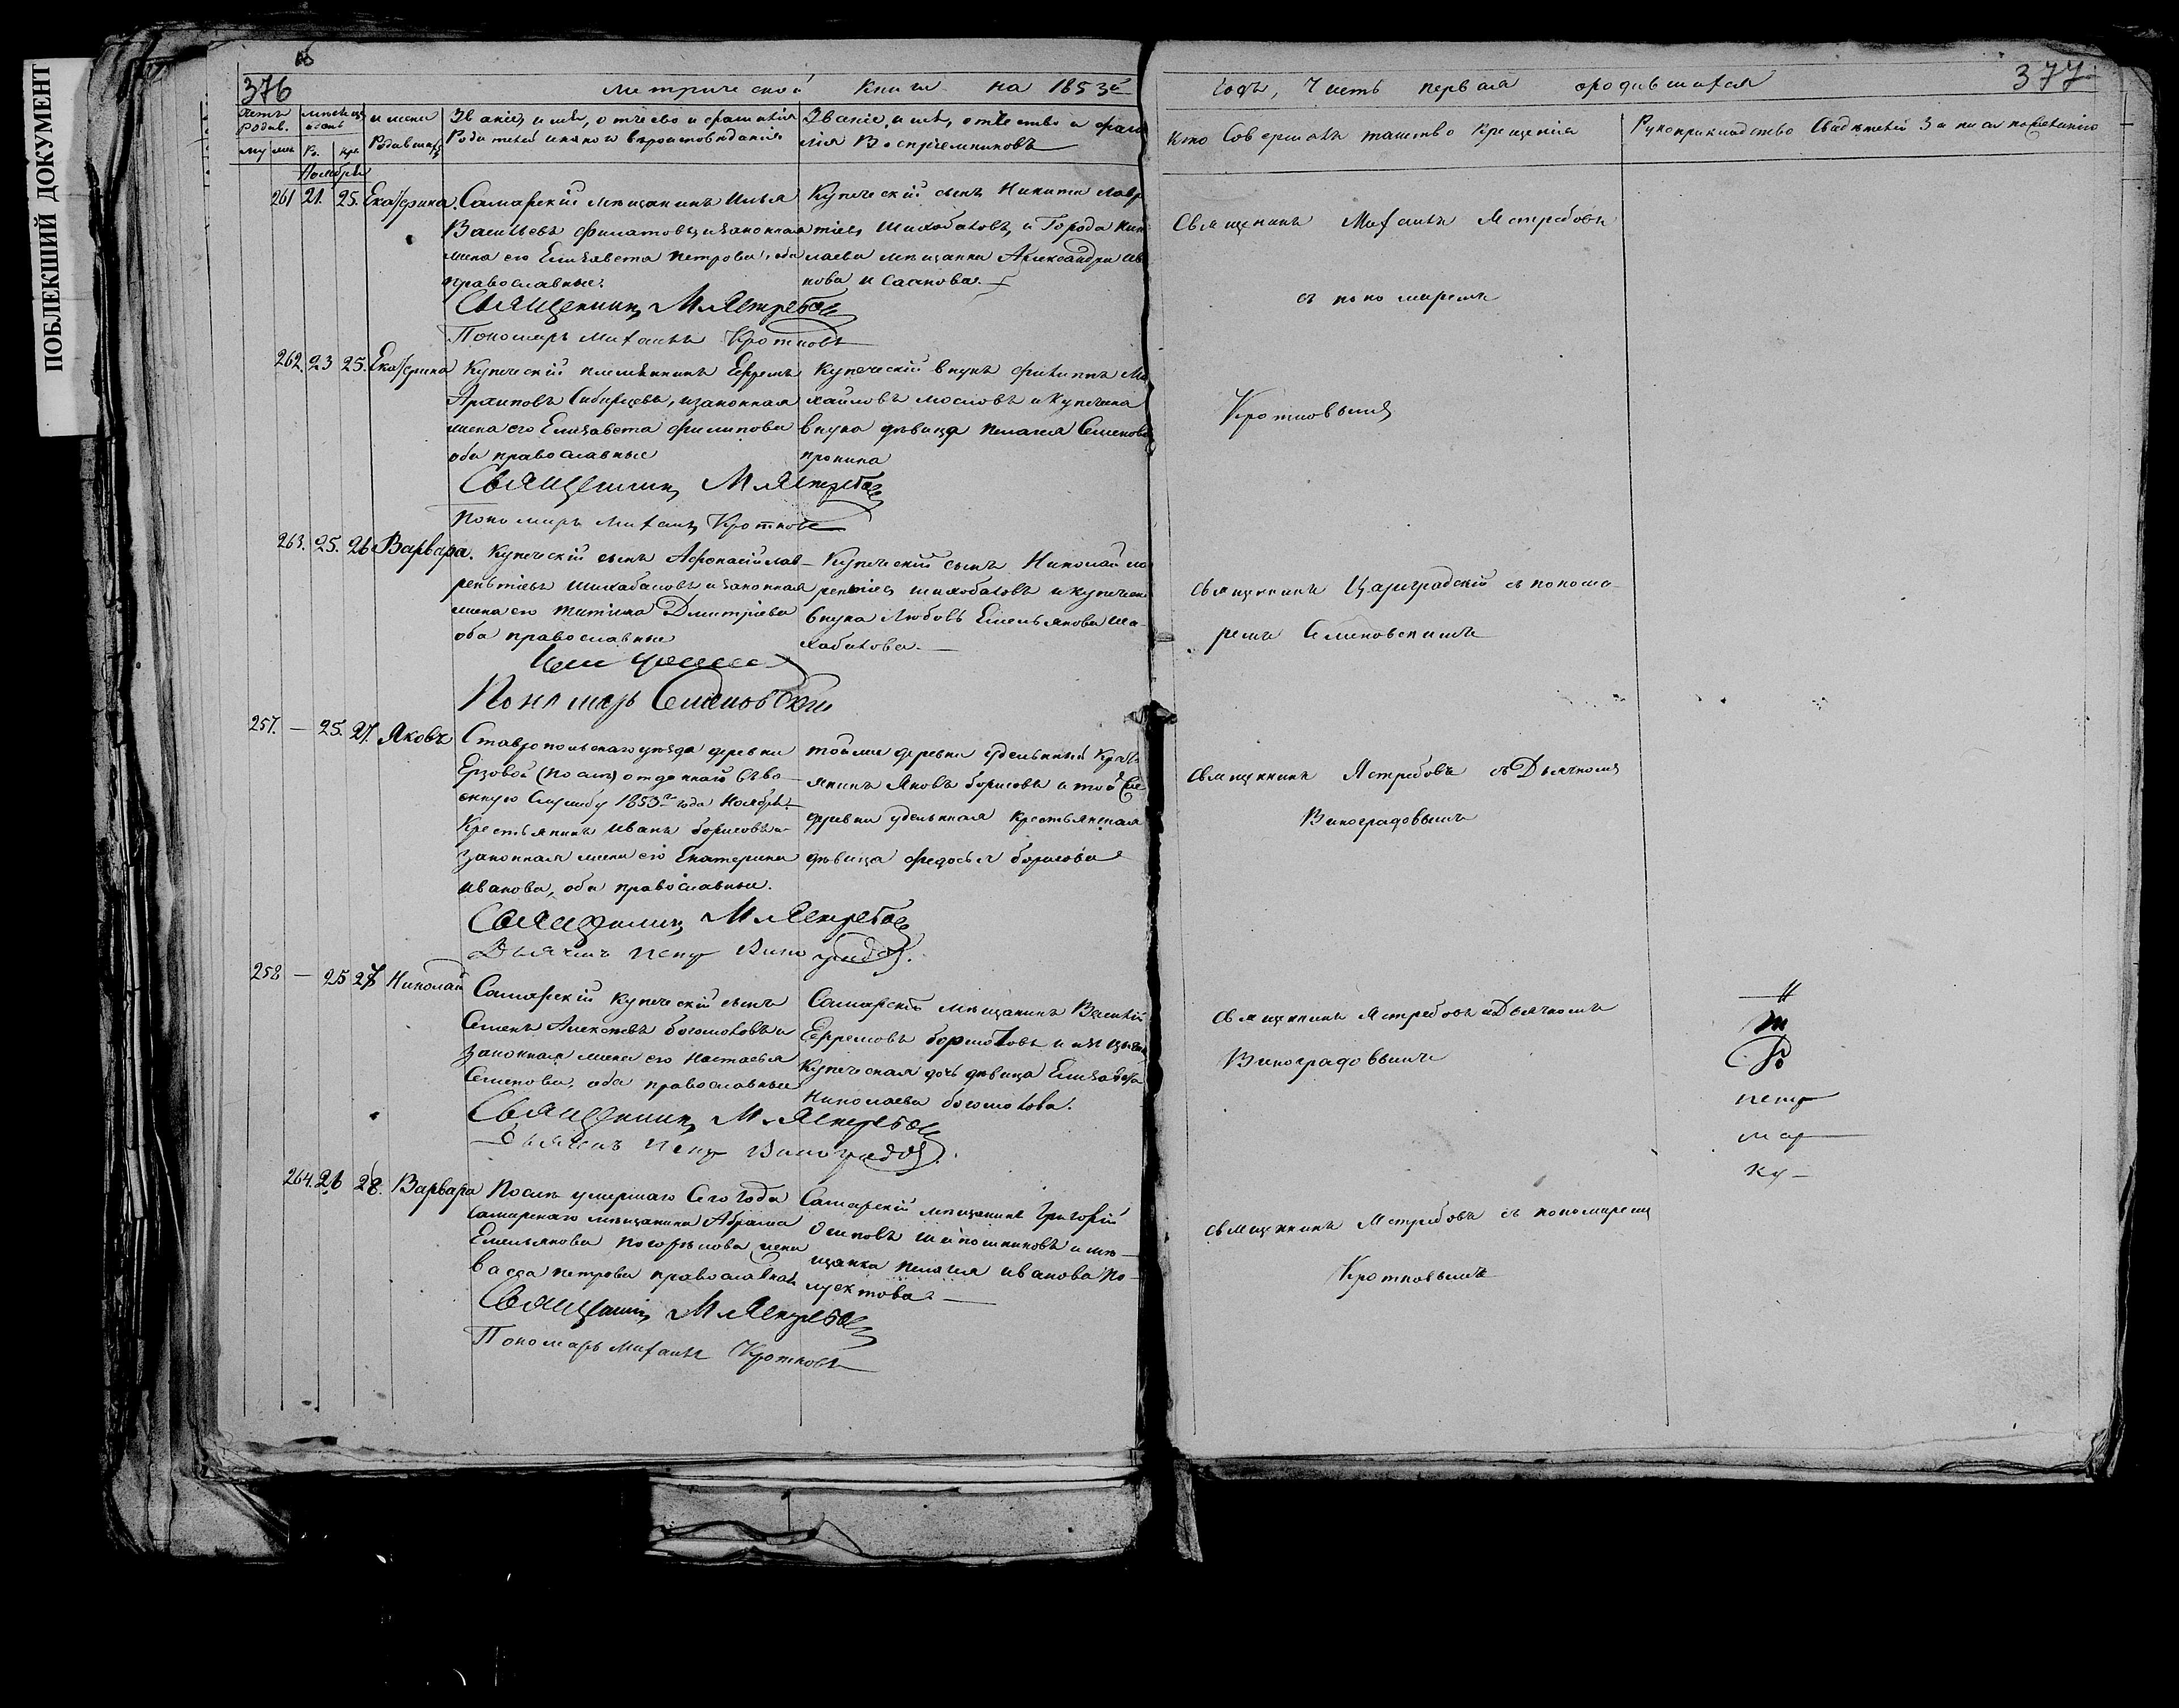 ПОБЛЕКШИЙ ДОКУМЕНТ
376
Метрической Книги на 1853й
годъ, Часть первая о родившихся
377
Имена
Родившихся
Званіе, имя, отчество и фамилія
Родителей и какого вероисповеданія
Званіе, имя, отчество и фами
лія Воспріемниковъ
Кто Совершалъ таинство Крещенія
Рукоприкладство Свидетелей Записи по желанію
Ноябрь
261 21. 25. Екатерина. Самарскій мещанинъ Илья
Васильевъ Филатовъ, и законная
жена его Елизавета Петрова, оба
православные.
Купеческій сынъ Никита Лавр
тіевъ Шихобаловъ, и Города Ни
лаева мещанка Александра Ив
нова
Священникъ М. Ястребовъ
Пономарь Михаилъ Кротковъ
Священникъ Михаилъ Ястребовъ
съ пономаремъ
262. 23 25. Екатерина Купеческій племянникъ Ефремъ
Архиповъ Сибирцевъ, и законная
жена его Елизавета Филипова
оба православные
Купеческій внукъ Филиппъ Ми
хайловъ Масловъ и Купечека
внука девица Пелагея Семенова
пронина
Священникъ М. Ястребовъ
Пономарь Михаилъ Кротковъ
Кротковымъ
263. 25. 26 Варвара. Купеческій сынъ Афонасій Лав-
рентіевъ Шихабаловъ и законная
жена его Татиана Дмитріева
оба православные
Купеческій сынъ Николай
рентіевъ Шихобаловъ и купечек
внука Любовь Емельянова Ши-
хабалова.
Пономарь Семеновскій
Священникъ Цареградскій съ понома-
ремъ Семеновскимъ
257. — 25. 27. Яковъ Ставропольскаго уезда деревни
Ерзовой (после) отданнаго въ во-
енную Службу 1853го года Ноября
Крестьянинъ Иванъ Борисовъ и
законная жена его Екатерина
Иванова, оба православные.
той же деревни удельный Кресть
янинъ Яковъ Борисовъ и той же
деревни удельнная крестьянская
девица Федосья Борисова
Священникъ М. Ястребовъ
Дьячекъ Петр Виноградов.
Священникъ Ястребовъ съ Дьячкомъ
Виноградовымъ
258 — 25 27 Николай Самарскій Купеческій сынъ
Семенъ Алексеевъ Богомоловъ и
законная жена его Настасья
Семенова, оба православные
Самарскій мещанинъ Василій
Ефремовъ
Купеческая дочь девица Елизавета
Николаева Богомолова.
Священникъ М. Ястребовъ
Дьячекъ Петр Виноградов.
Священникъ Ястребовъ съ Дьячкомъ
Виноградовымъ
петр
мар
ку
264. 26 28. Варвара После умершаго Сего года
Самарскаго мещанина Абрама
Емельянова Погорелова жена
Васса Петрова православная
Самарскій мещанинъ Григорій
Осиповъ Шапошниковъ и ме-
щанка Пелагея Иванова По-
луектова.
Священникъ М. Ястребовъ
Пономарь Михаилъ Кротковъ
Священникъ Ястребовъ съ пономаремъ
Кротковымъ